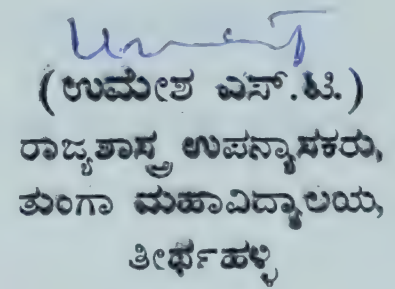 ( ಉಮೇಶ ಎಸ್.ಟಿ. )
ರಾಜ್ಯಶಾಸ್ತ್ರ ಉಪನ್ಯಾಸಕರು,
ತುಂಗಾ ಮಹಾವಿದ್ಯಾಲಯ,
ತೀರ್ಥಹಳ್ಳಿ